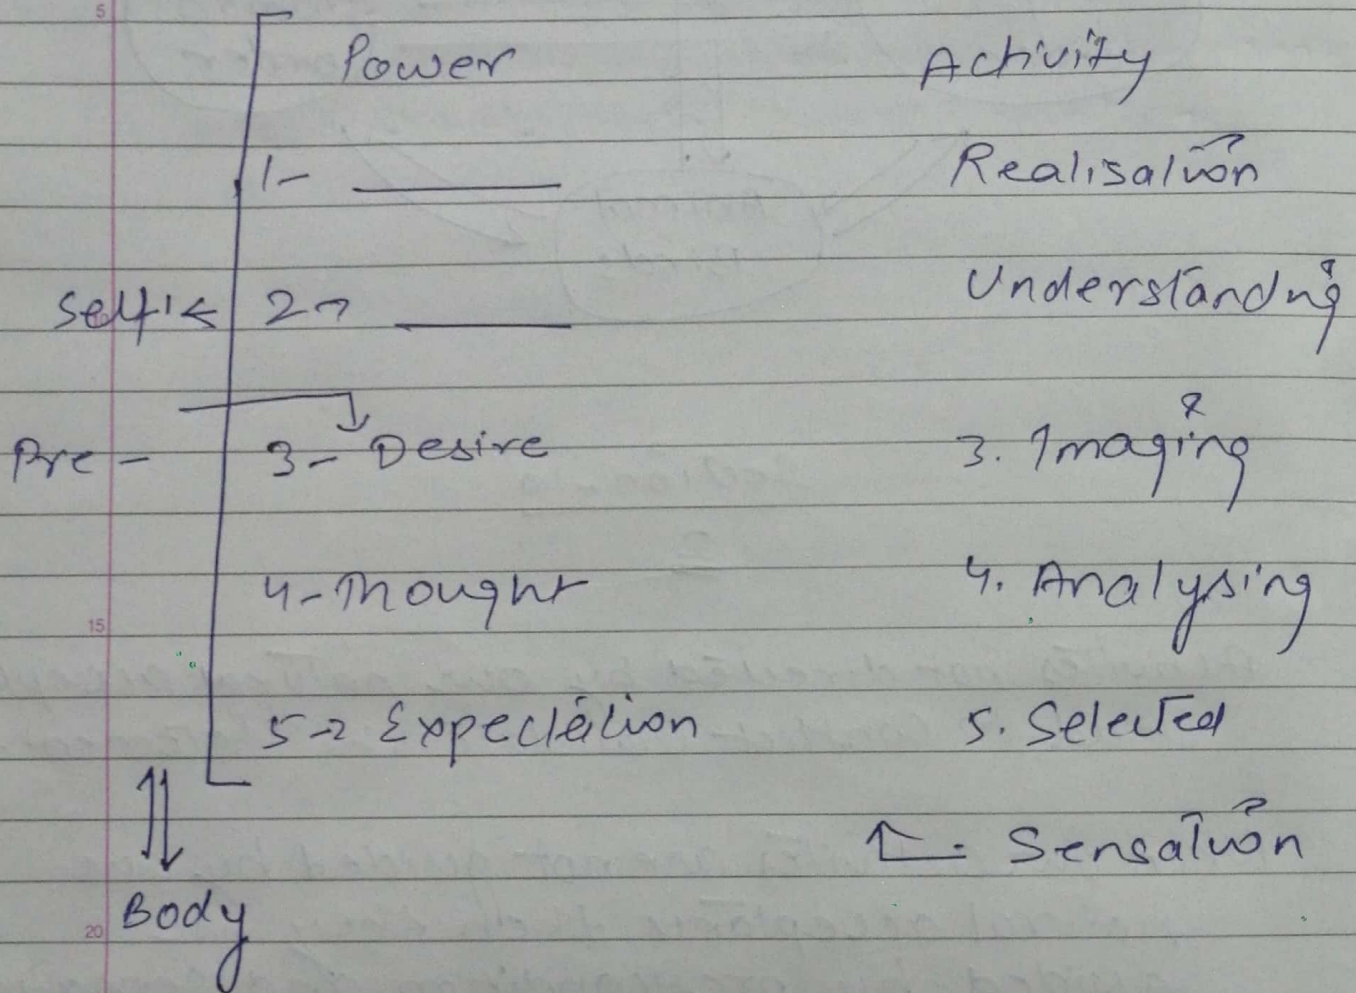 5
Power Activity
1- ____ Realisation
Self 2→ ____ Understanding
Pre - 3- Desire 3. Imaging
4- Thought 4. Analysing
15
5→ Expectation 5. Selected
Sensation
Body
20